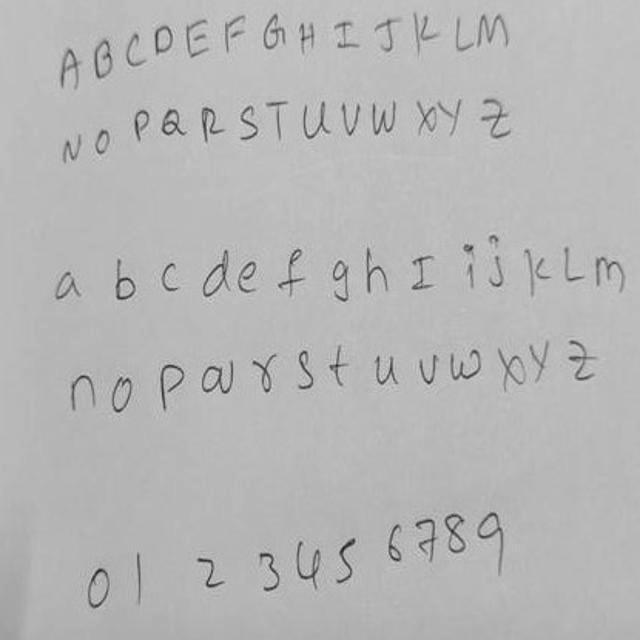 A B C D E F G H I J K L M
N O P Q R S T U V W X Y Z
a b c d e f g h I i j k L m
n o p q r s t u v w x y z
0 1 2 3 4 5 6 7 8 9